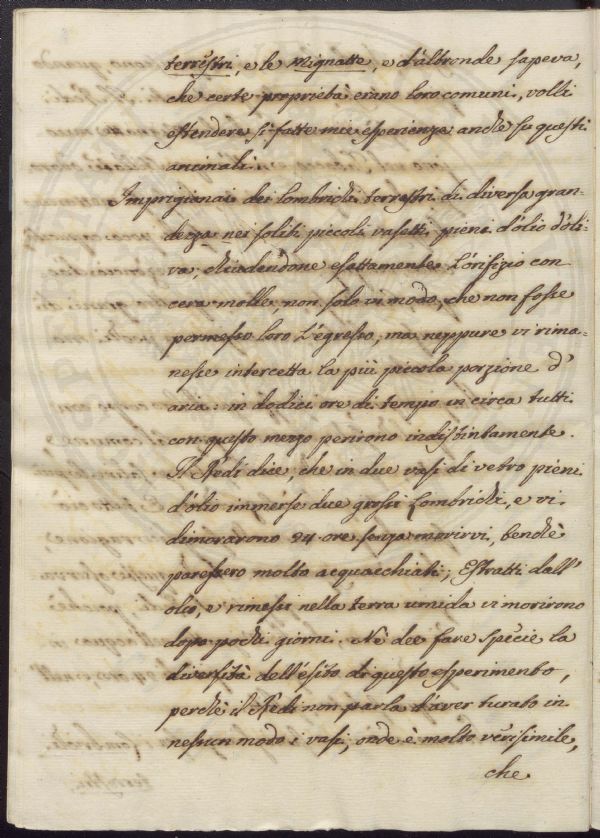 terrestri, e le Mignatte, e d'altronde sapeva,
che certe proprietà erano loro comuni, volli
estendere sì fatte mie esperienze anche su questi
animali.
Imprigionai dei lombrichi terrestri di diversa gran-
dezza nei soliti piccoli vasetti pieni d'olio d'oli-
va, chiudendone esattamente l'orifizio con
cera molle, non solo in modo, che non fosse
permesso loro l'egresso, ma neppure vi rima-
nesse intercetta la più piccola porzione d'
aria: in dodici ore di tempo in circa tutti
con questo mezzo perirono indistintamente.
Il Redi dice, che in due vasi di vetro pieni
d'olio immerse due grossi Lombrichi, e vi
dimorarono 24 ore senza morirvi, benchè
paressero molto acquacchiati; Estratti dall'
olio, e rimessi nella terra umida vi morirono
dopo pochi giorni. Nè dee fare spècie la
diversità dell'èsito di questo esperimento,
perchè il Redi non parla d'aver turato in
nessun modo i vasi, onde è molto verisimile,
che